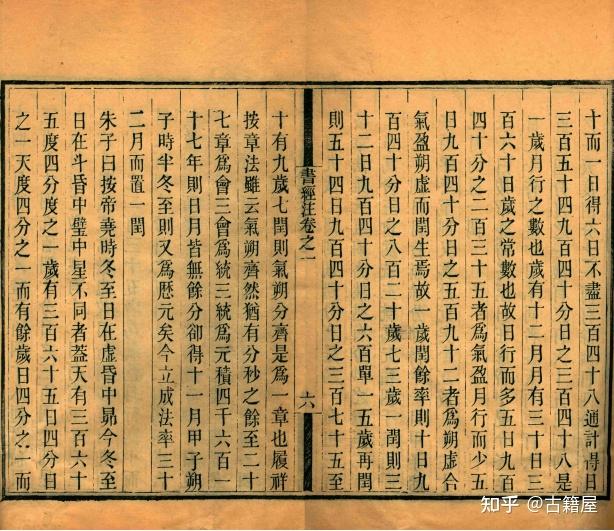 十而一日得六日不盡三百四十八通計得日
三百五十四九百四十分日之三百四十八是
一歲月行之數也歲有十二月月有三十日三
百六十日歲之常數也故日行而多五日九百
四十分之二百三十五者爲氣盈月行而少五
日九百四十分日之五百九十二者爲朔虛合
氣盈朔虛而閏生焉故一歲閏餘率則十日九
百四十分日之八百二十歲七三歲一閏則三
十二日九百四十分日之六百單一五歲再閏
則五十四日九百四十分日之三百七十五至
書經注卷之一
六
十有九歲七閏則氣朔分齊是爲一章也履祥
按章法雖云氣朔齊然猶有分秒之餘至二十
七章爲會三會爲統三統爲元積四千六百一
十七年則日月皆無餘分卻得十一月甲子朔
子時半冬至則又爲厯元矣今立成法率三十
二月而置一閏
朱子曰按帝堯時冬至日在虛昏中昴今冬至
日在斗昏中壁中星不同者蓋天有三百六十
五度四分度之一歲有三百六十五日四分日
之一天度四分之一而有餘歲日四分之一而
知乎 @古籍屋